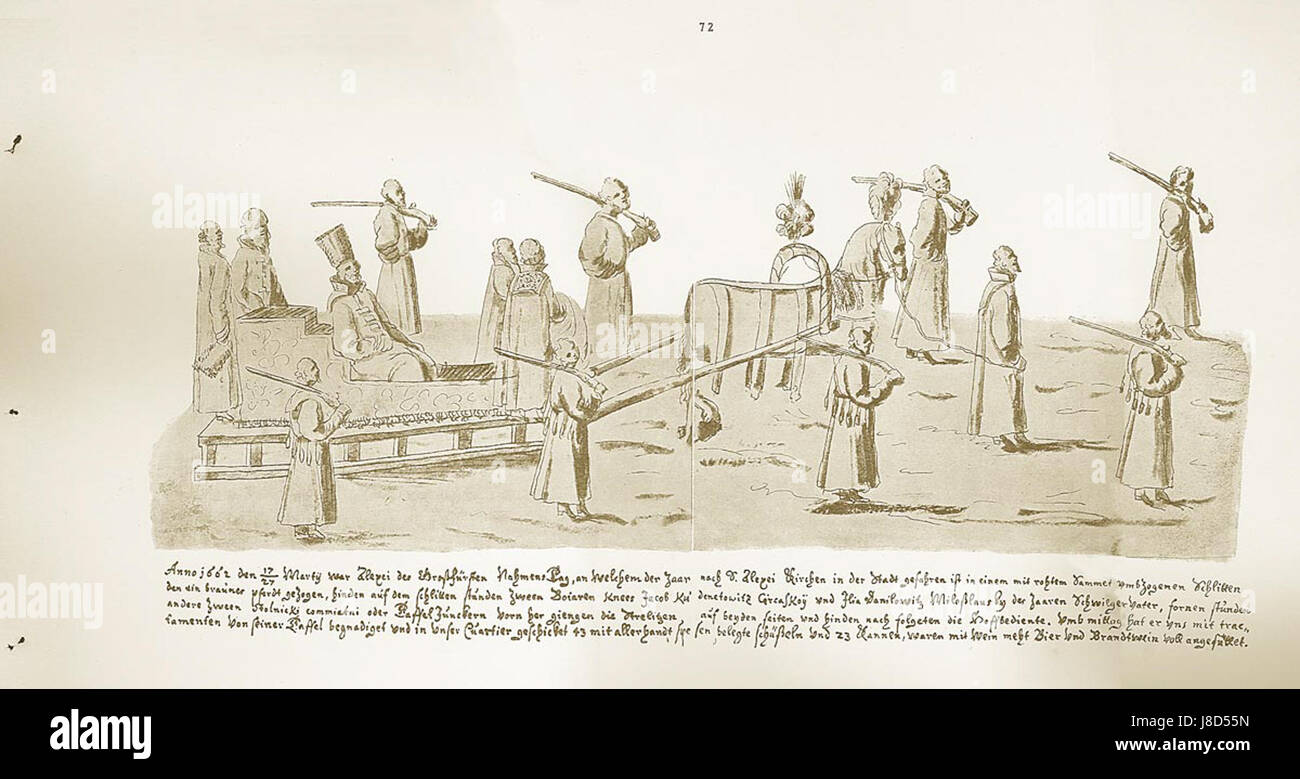 72
Anno 1662 den 17/27 Martÿ war Alexei des Grossfürsten Nahmens Tag, an welchem der Zaar nach S. Alexei Kirchen in der Stadt gefahren ist in einem mit rohtem Sammet umbzogenen Schlitten
den ein braunes pferdt gezogen, hinden auf dem schlitten stunden zween Boiaren Knees Jacob Kudenetowitz Circaskoÿ und Ilia Danilowitz Miloslausky der Zaaren Schwiger Vater, fornen stunden
andere zween Stolnicki commialni oder Taffel Junckern vorn her giengen die Strelitzen, auf beyden seiten und hinden nach folgeten die Hoffbediente. Umb mittag hat er uns mit trac-
tamenten von seiner Taffel begnadiget und in unser Quartier geschicket 43 mit allerhandt speisen belegte schüsseln und 23 Kannen, waren mit Wein meht Bier und Brandtwein voll angefüllet.
alamy
Image ID: J8D55N
www.alamy.com